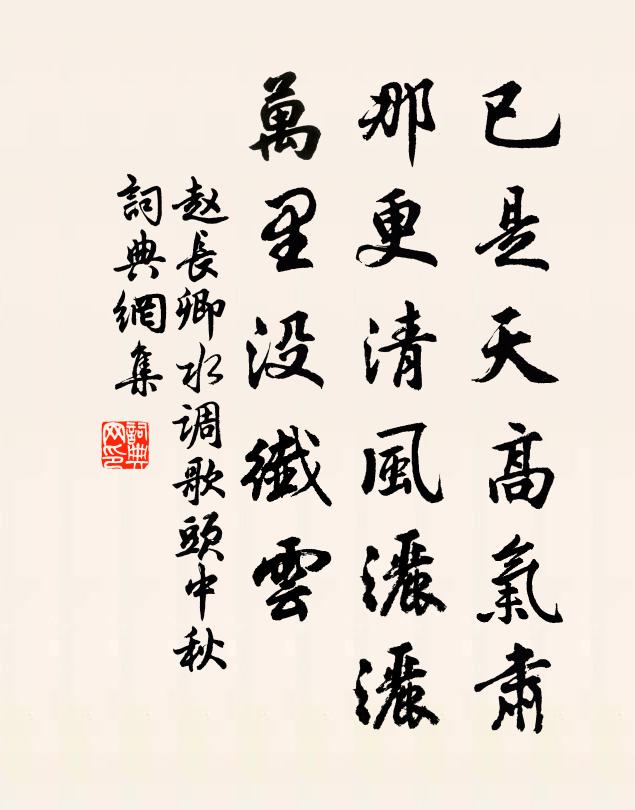 已是天高氣肅
那更清風灑灑
萬里没纖雲
赵長卿水调歌頭中秋
詞典網集
詞典
网印